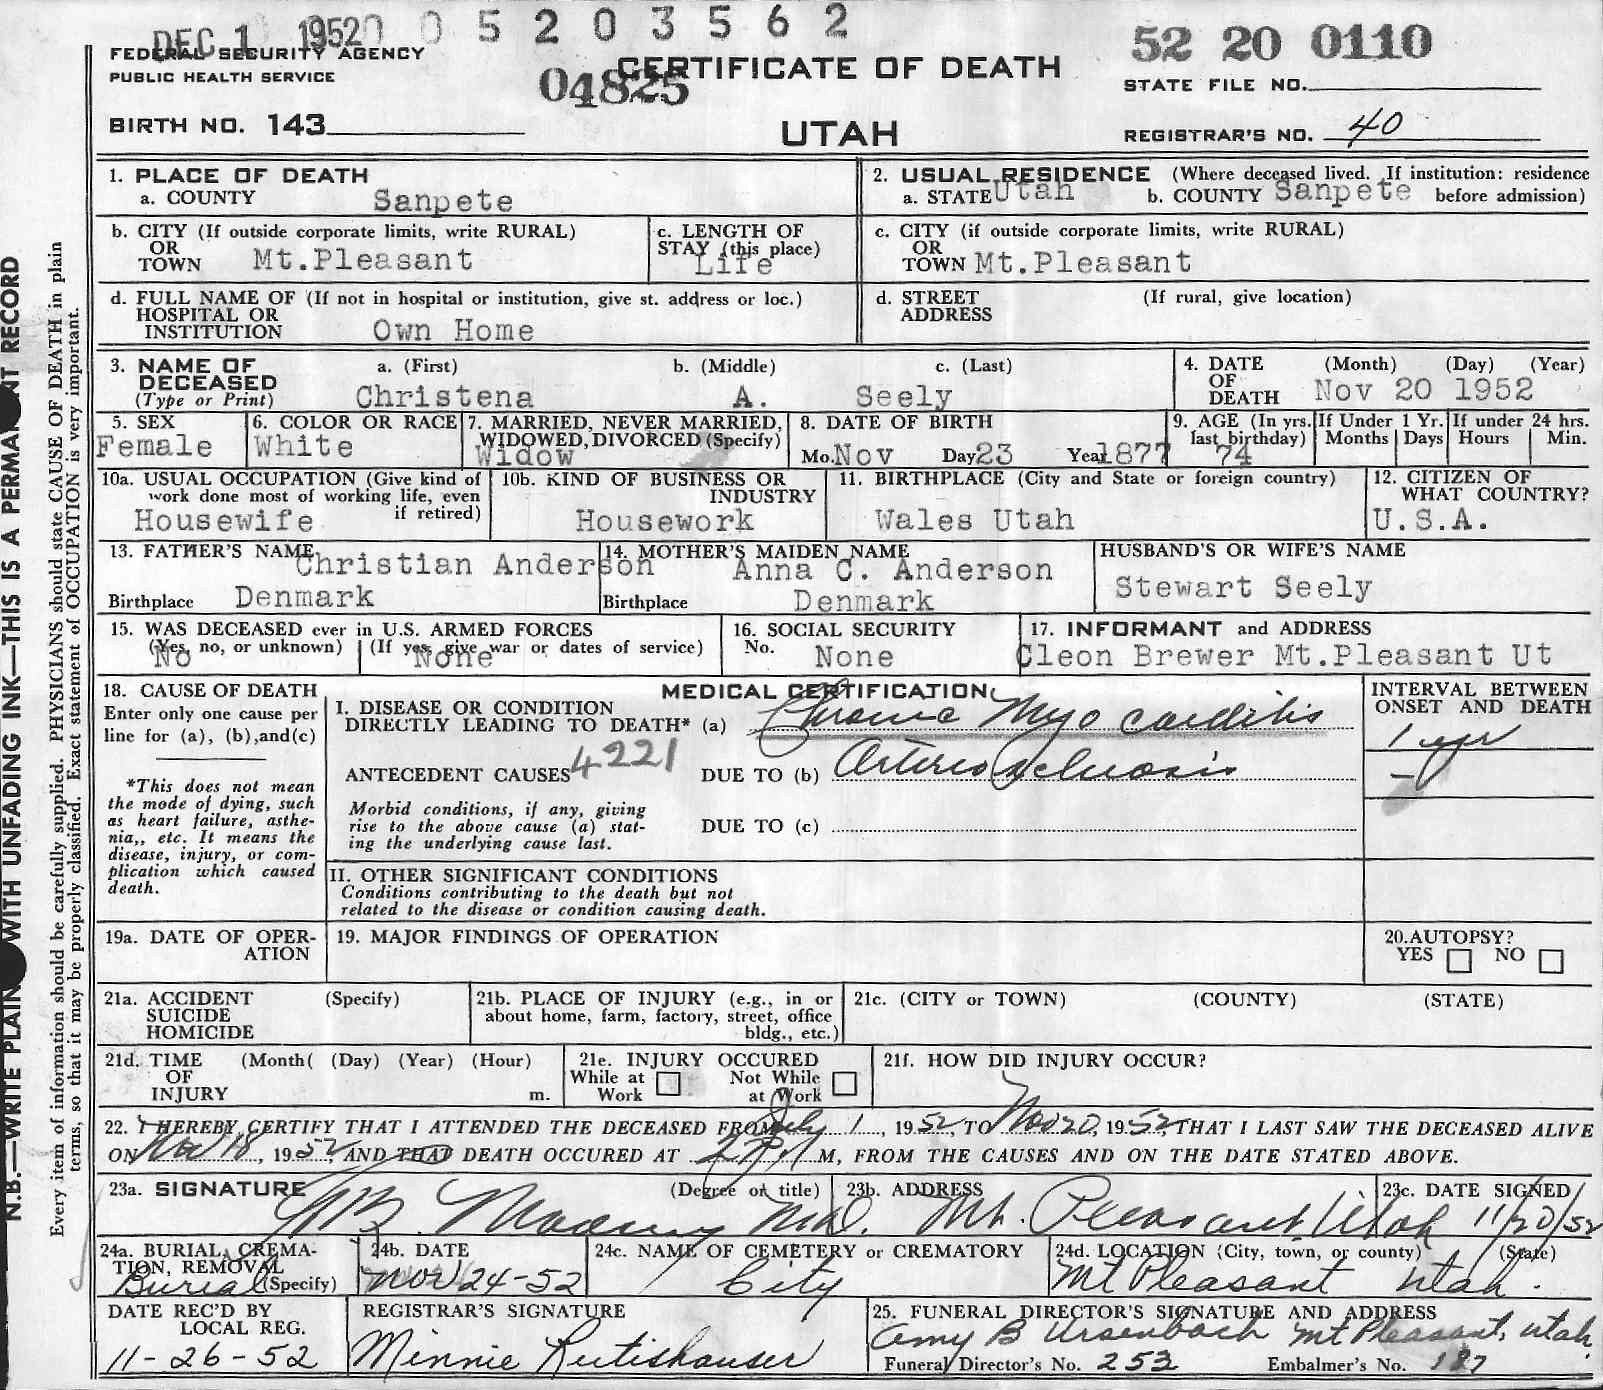 DEC 1 1952 0 0 5 2 0 3 5 6 2
FEDERAL SECURITY AGENCY
PUBLIC HEALTH SERVICE
04825
CERTIFICATE OF DEATH
UTAH
52 20 0110
STATE FILE NO.
BIRTH NO. 143
REGISTRAR'S NO. 40
N.B.—WRITE PLAIN WITH UNFADING INK—THIS IS A PERMA NT RECORD
Every item of information should be carefully supplied. PHYSICIANS should state CAUSE OF DEATH in plain
terms, so that it may be properly classified. Exact statement of OCCUPATION is very important.
1. PLACE OF DEATH
a. COUNTY Sanpete
2. USUAL RESIDENCE (Where deceased lived. If institution: residence
a. STATE Utah b. COUNTY Sanpete before admission)
b. CITY (If outside corporate limits, write RURAL)
OR
TOWN Mt.Pleasant
c. LENGTH OF
STAY (this place)
Life
c. CITY (if outside corporate limits, write RURAL)
OR
TOWN Mt.Pleasant
d. FULL NAME OF (If not in hospital or institution, give st. address or loc.)
HOSPITAL OR
INSTITUTION Own Home
d. STREET (If rural, give location)
ADDRESS
3. NAME OF a. (First) b. (Middle) c. (Last)
DECEASED
(Type or Print) Christena A. Seely
4. DATE (Month) (Day) (Year)
OF
DEATH Nov 20 1952
5. SEX
Female
6. COLOR OR RACE
White
7. MARRIED, NEVER MARRIED,
WIDOWED, DIVORCED (Specify)
Widow
8. DATE OF BIRTH
Mo. Nov Day 23 Year 1877
9. AGE (In yrs.
last birthday)
74
If Under 1 Yr.
Months Days
If under 24 hrs.
Hours Min.
10a. USUAL OCCUPATION (Give kind of
work done most of working life, even
if retired)
Housewife
10b. KIND OF BUSINESS OR
INDUSTRY
Housework
11. BIRTHPLACE (City and State or foreign country)
Wales Utah
12. CITIZEN OF
WHAT COUNTRY?
U.S.A.
13. FATHER'S NAME Christian Anderson
Birthplace Denmark
14. MOTHER'S MAIDEN NAME
Anna C. Anderson
Birthplace Denmark
HUSBAND'S OR WIFE'S NAME
Stewart Seely
15. WAS DECEASED ever in U.S. ARMED FORCES
(Yes, no, or unknown) (If yes, give war or dates of service)
No None
16. SOCIAL SECURITY
No. None
17. INFORMANT and ADDRESS
Cleon Brewer Mt.Pleasant Ut
18. CAUSE OF DEATH
Enter only one cause per
line for (a), (b),and(c)
*This does not mean
the mode of dying, such
as heart failure, asthe-
nia,, etc. It means the
disease, injury, or com-
plication which caused
death.
MEDICAL CERTIFICATION
I. DISEASE OR CONDITION
DIRECTLY LEADING TO DEATH* (a) Chronic Myo carditis
4221
ANTECEDENT CAUSES DUE TO (b) Arterio sclerosis
Morbid conditions, if any, giving
rise to the above cause (a) stat-
ing the underlying cause last.
DUE TO (c)
INTERVAL BETWEEN
ONSET AND DEATH
1 yr
II. OTHER SIGNIFICANT CONDITIONS
Conditions contributing to the death but not
related to the disease or condition causing death.
19a. DATE OF OPER-
ATION
19. MAJOR FINDINGS OF OPERATION
20.AUTOPSY?
YES NO
21a. ACCIDENT (Specify)
SUICIDE
HOMICIDE
21b. PLACE OF INJURY (e.g., in or
about home, farm, factory, street, office
bldg., etc.)
21c. (CITY or TOWN) (COUNTY) (STATE)
21d. TIME (Month( (Day) (Year) (Hour)
OF
INJURY m.
21e. INJURY OCCURED
While at Work Not While at Work
21f. HOW DID INJURY OCCUR?
22. I HEREBY CERTIFY THAT I ATTENDED THE DECEASED FROM July 1, 1952, TO Nov 20, 1952, THAT I LAST SAW THE DECEASED ALIVE
ON Nov 18, 1952, AND THAT DEATH OCCURED AT 2 P M, FROM THE CAUSES AND ON THE DATE STATED ABOVE.
23a. SIGNATURE (Degree or title)
M.D.
23b. ADDRESS
Mt. Pleasant, Utah
23c. DATE SIGNED
11/20/52
24a. BURIAL, CREMA-
TION, REMOVAL
Burial (Specify)
24b. DATE
Nov 24-52
24c. NAME OF CEMETERY or CREMATORY
City
24d. LOCATION (City, town, or county) (State)
Mt Pleasant Utah.
DATE REC'D BY
LOCAL REG.
11-26-52
REGISTRAR'S SIGNATURE
Minnie Rutishauser
25. FUNERAL DIRECTOR'S SIGNATURE AND ADDRESS
Amy B Ursenbach Mt Pleasant, Utah.
Funeral Director's No. 253 Embalmer's No. 187